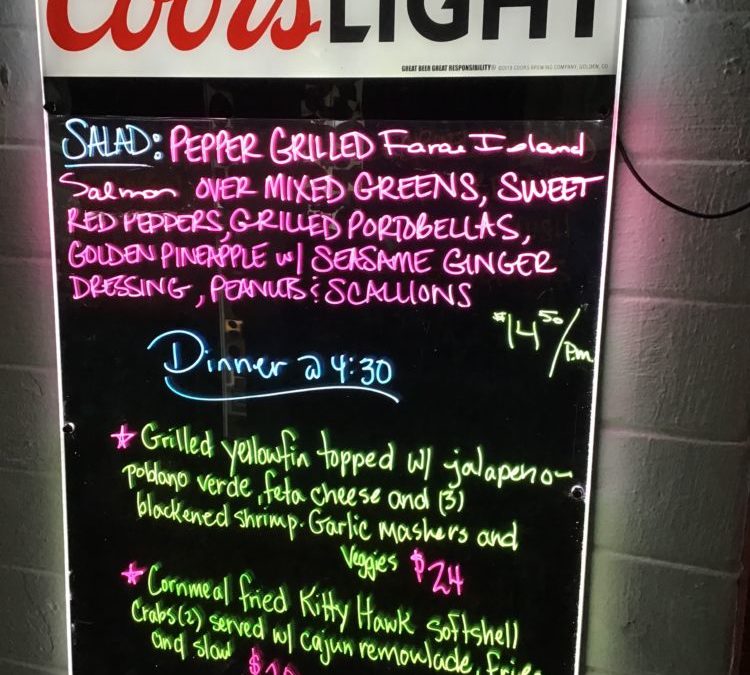 Coors LIGHT
GREAT BEER GREAT RESPONSIBILITY® ©2019 COORS BREWING COMPANY, GOLDEN, CO
SALAD: PEPPER GRILLED Faroe Island
Salmon OVER MIXED GREENS, SWEET
RED PEPPERS, GRILLED PORTOBELLAS,
GOLDEN PINEAPPLE w/ SEASAME GINGER
DRESSING, PEANUTS & SCALLIONS
$14.50/p.m
Dinner @ 4:30
★ Grilled yellowfin topped w/ jalapeno-
poblano verde, feta cheese and (3)
blackened shrimp. Garlic mashers and
Veggies $24
★ Cornmeal fried Kitty Hawk softshell
Crabs (2) served w/ cajun remowlade, fries
and slaw